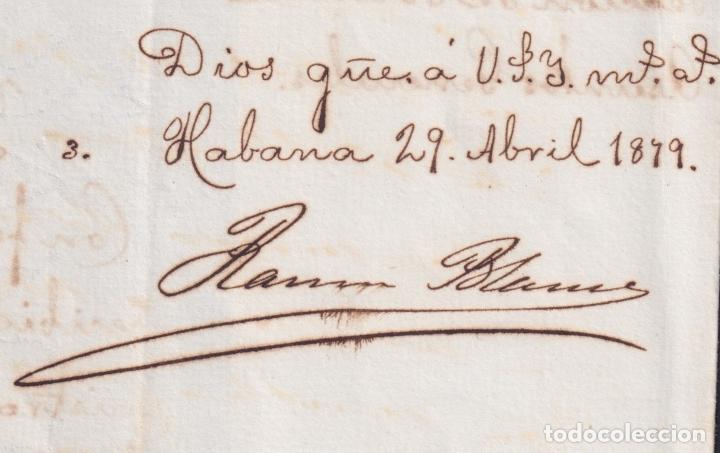 Dios gũe. á V.S.Y. mṣ. aṣ.
3. Habana 29. Abril 1879.
Ramon Blanco
todocoleccion